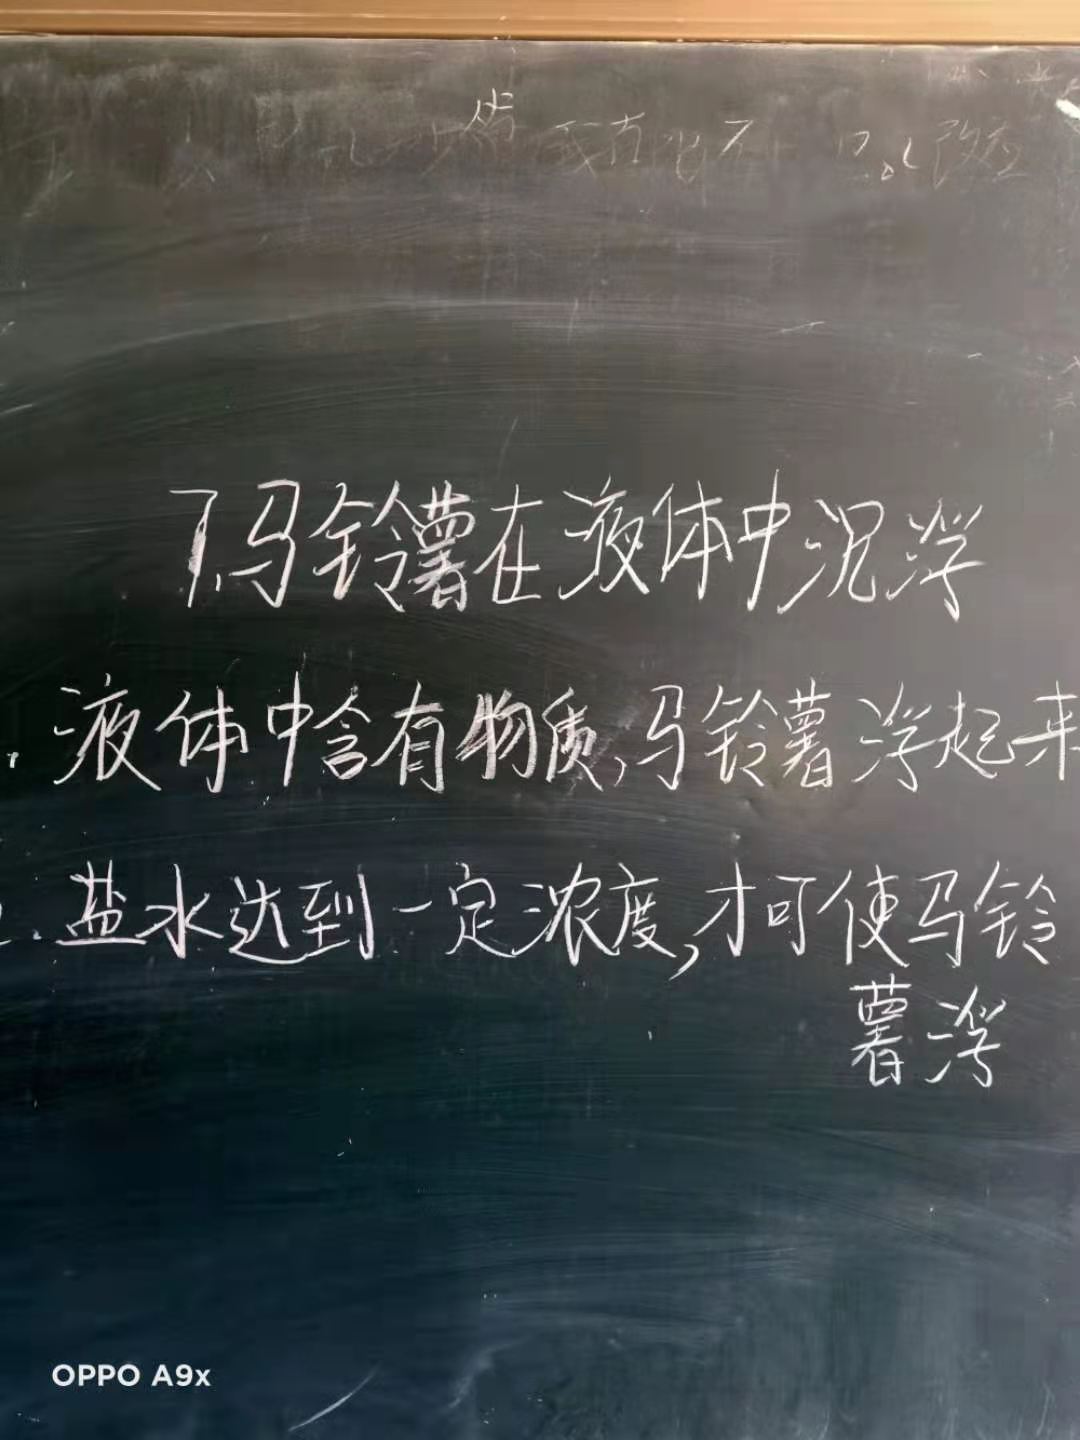 7.马铃薯在液体中沉浮
. 液体中含有物质,马铃薯浮起来
. 盐水达到一定浓度,才可使马铃
薯浮
OPPO A9x